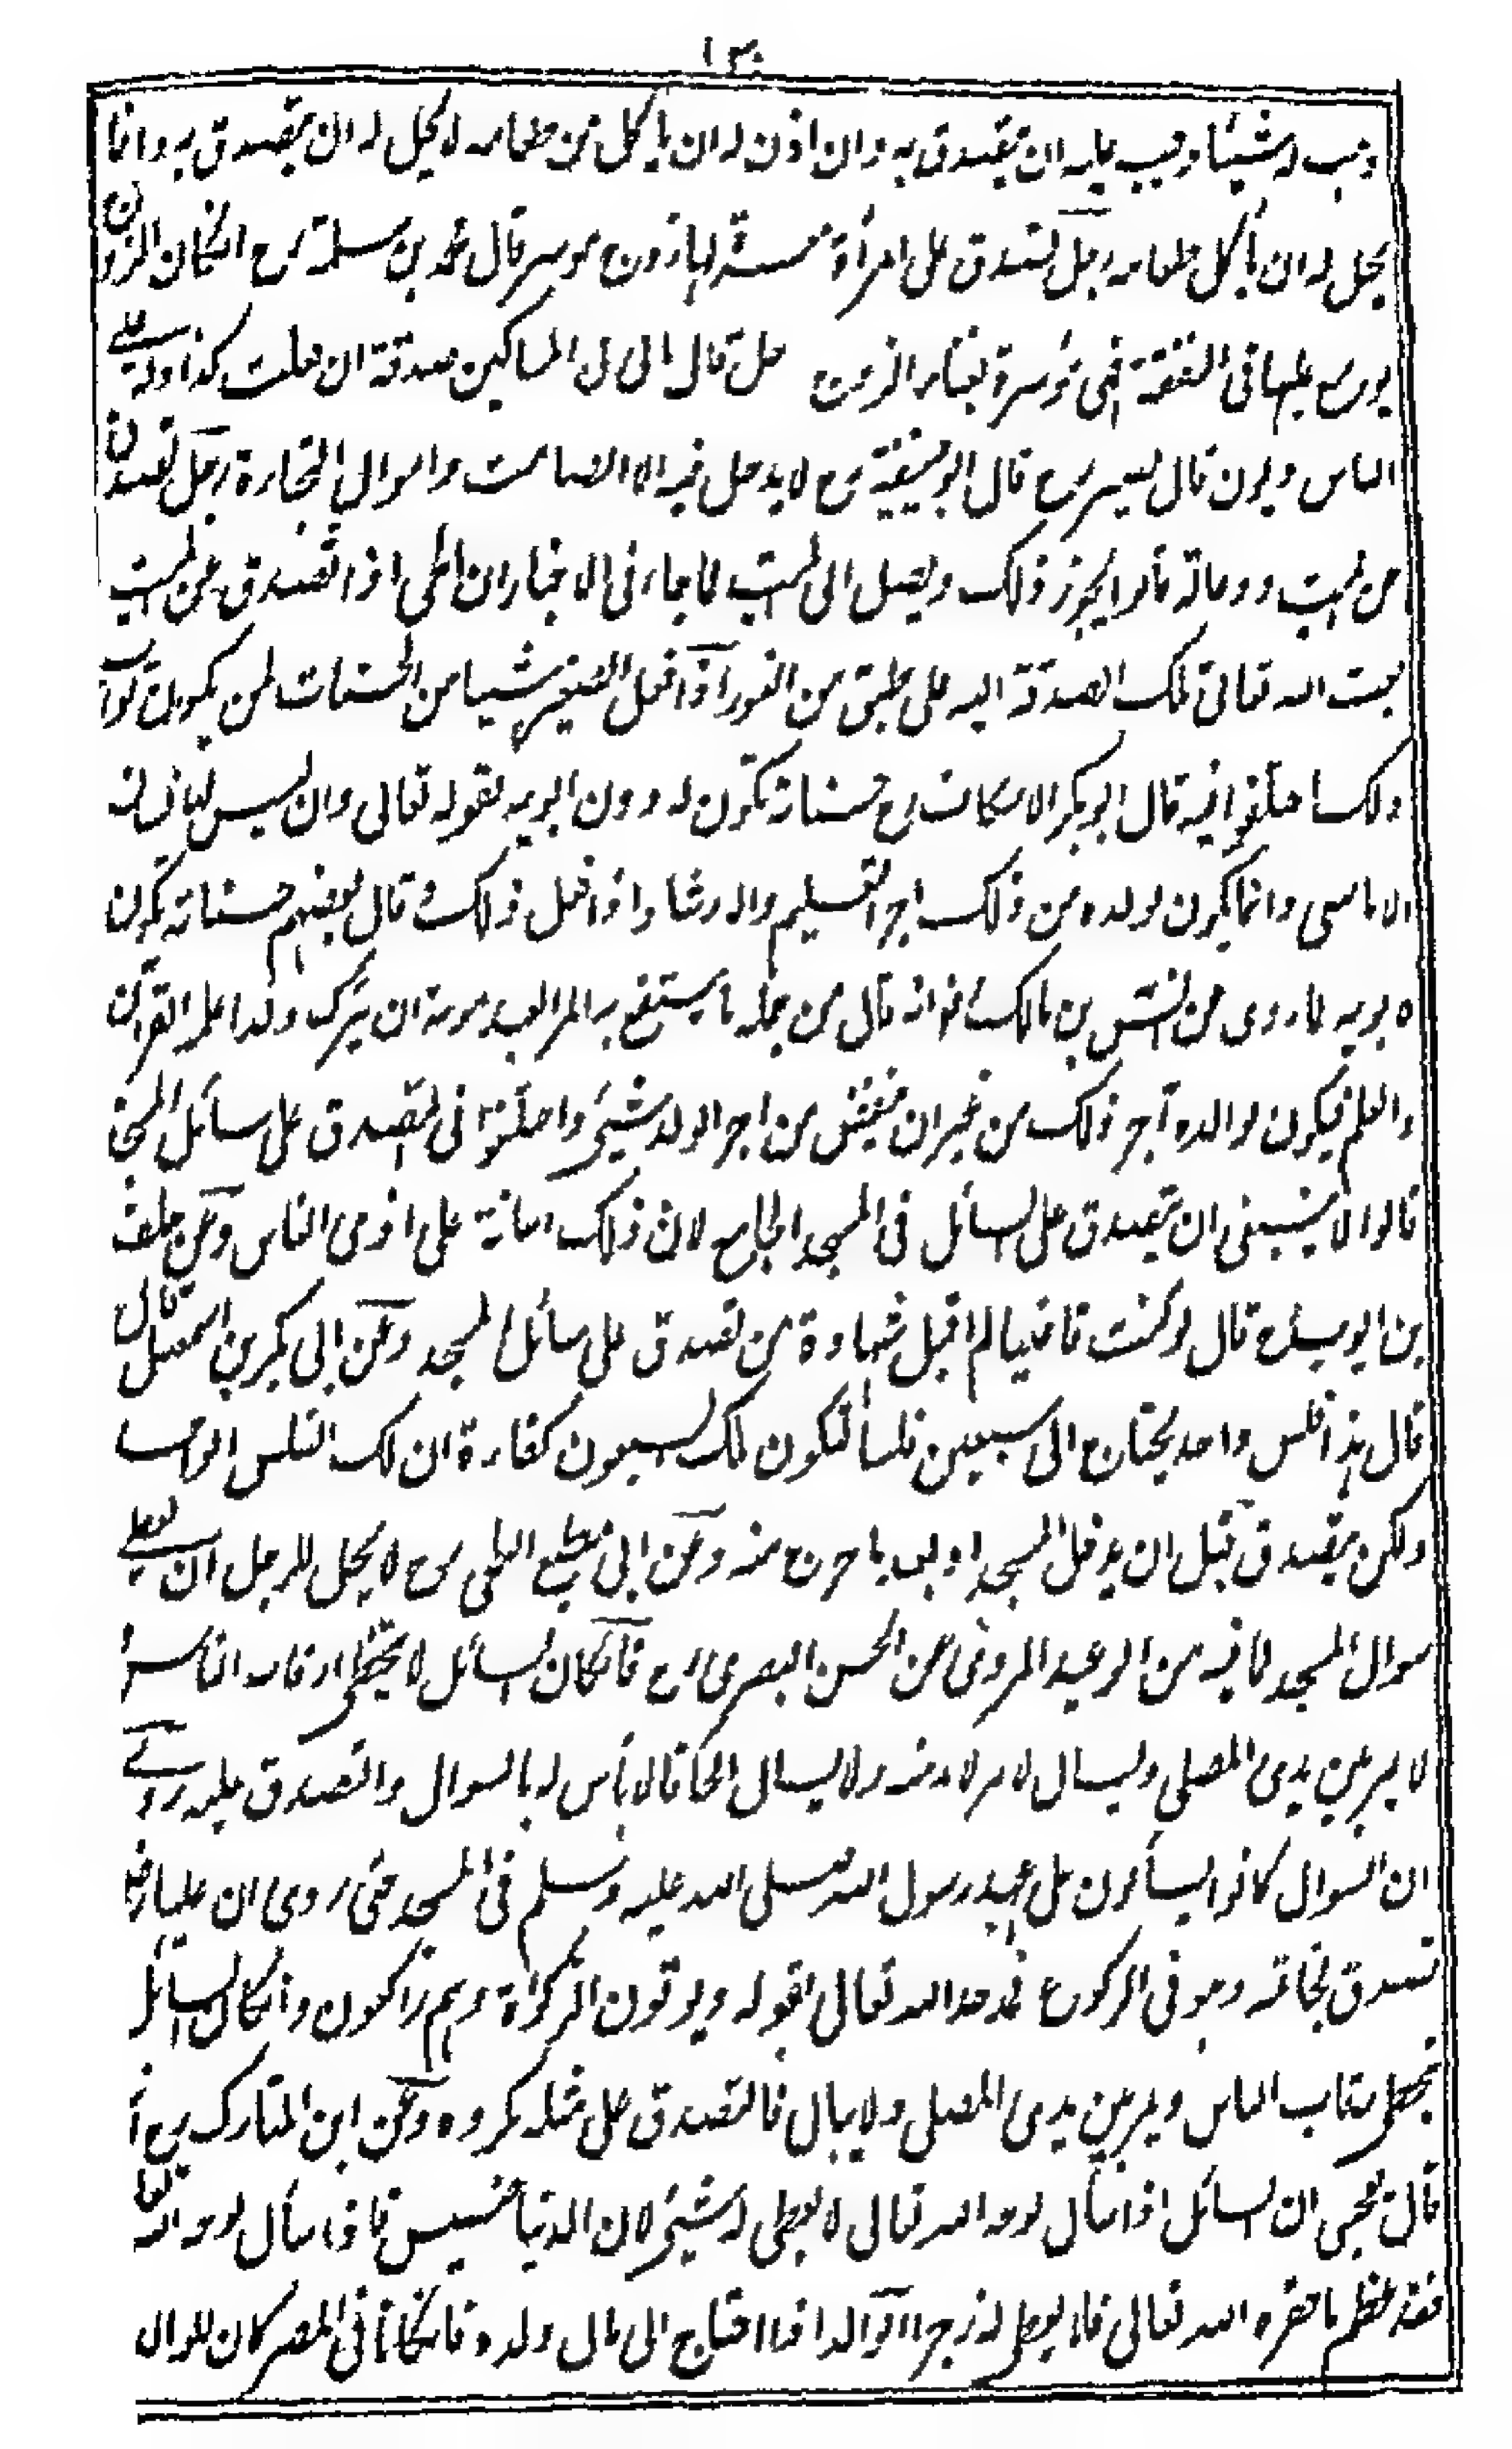 ١٣٠
وهب له شيئا وجب عليه ان يتصدق به وان اذن له ان ياكل من طعامه لا يحل له ان يتصدق به وانما
يحل له ان يأكل طعامه رجل تصدق على امرأة معسرة لها زوج موسر قال محمد بن سلمة رح ان كان الزوج
يوسع عليها فى النفقة فهى موسرة بغناء الزوج رجل قال مالى فى المساكين صدقة ان فعلت كذا وله على
الناس ديون قال نصير رح قال ابو حنيفة رح لا يدخل فيه الا الصامت واموال التجارة رجل تصدق
عن الميت ودعا له قالوا يجوز ذلك ويصل الى الميت لما جاء فى الاخبار ان الحى اذا تصدق عن الميت
بعث الله تعالى تلك الصدقة اليه على طبق من النور اذا فعل الصغير شيئا من الحسنات لمن يكون ثواب
ذلك اختلفوا فيه قال ابو بكر الاسكاف رح حسناته تكون له دون ابويه لقوله تعالى وان ليس للانسان
الا ما سعى وانما يكون لوالده من ذلك اجر التعليم والارشاد اذا فعل ذلك وقال بعضهم حسناته يكون
لابويه لما روى عن انس بن مالك رض انه قال من جملة ما ينتفع به المرء بعد موته ان يترك ولدا علم القرآن
والعلم فيكون لوالده اجر ذلك من غير ان ينقص من اجر الولد شىء واختلفوا فى التصدق على سائل المسجد
قالوا لا ينبغى ان يتصدق على السائل فى المسجد الجامع لان ذلك اعانة على اذى الناس وعن خلف
بن ايوب رح قال لو كنت قاضيا لم اقبل شهادة من تصدق على سائل المسجد وعن ابى بكر بن اسمعيل قال
قال هذا فلس واحد يحتاج الى سبعين فلسا لتكون تلك السبعون كفارة ان لك الفلس الواحد
ولكن يتصدق قبل ان يدخل المسجد او بعد ما خرج منه وعن ابى مطيع البلخى رح لا يحل للرجل ان يعطى
سوال المسجد لما فيه من الوعيد المروى عن الحسن البصرى رح فان كان السائل لا يتخطى رقاب الناس و
لا يمر بين يدى المصلى ويسال لامر لا بد منه ولا يسال الحافا لا بأس له بالسوال والتصدق عليه روى
ان السوال كانوا يسألون على عهد رسول الله صلى الله عليه وسلم فى المسجد حتى روى ان عليا رض
تصدق بخاتمه وهو فى الركوع فمدحه الله تعالى بقوله ويوتون الزكوٰة وهم راكعون وان كان السائل
يتخطى رقاب الناس ويمر بين يدى المصلى ولا يبال فالتصدق على مثله مكروه وعن ابن المبارك رح انه
قال يعجبنى ان السائل اذا سأل لوجه الله تعالى لا يعطى له شىء لان الدنيا خسيس فاذا سأل لوجه الله تعالى
فقد عظم ما حقره الله تعالى فلا يعطى له زجرا الوالد اذا احتاج الى مال ولده فان كانا فى المصر كان للوالد